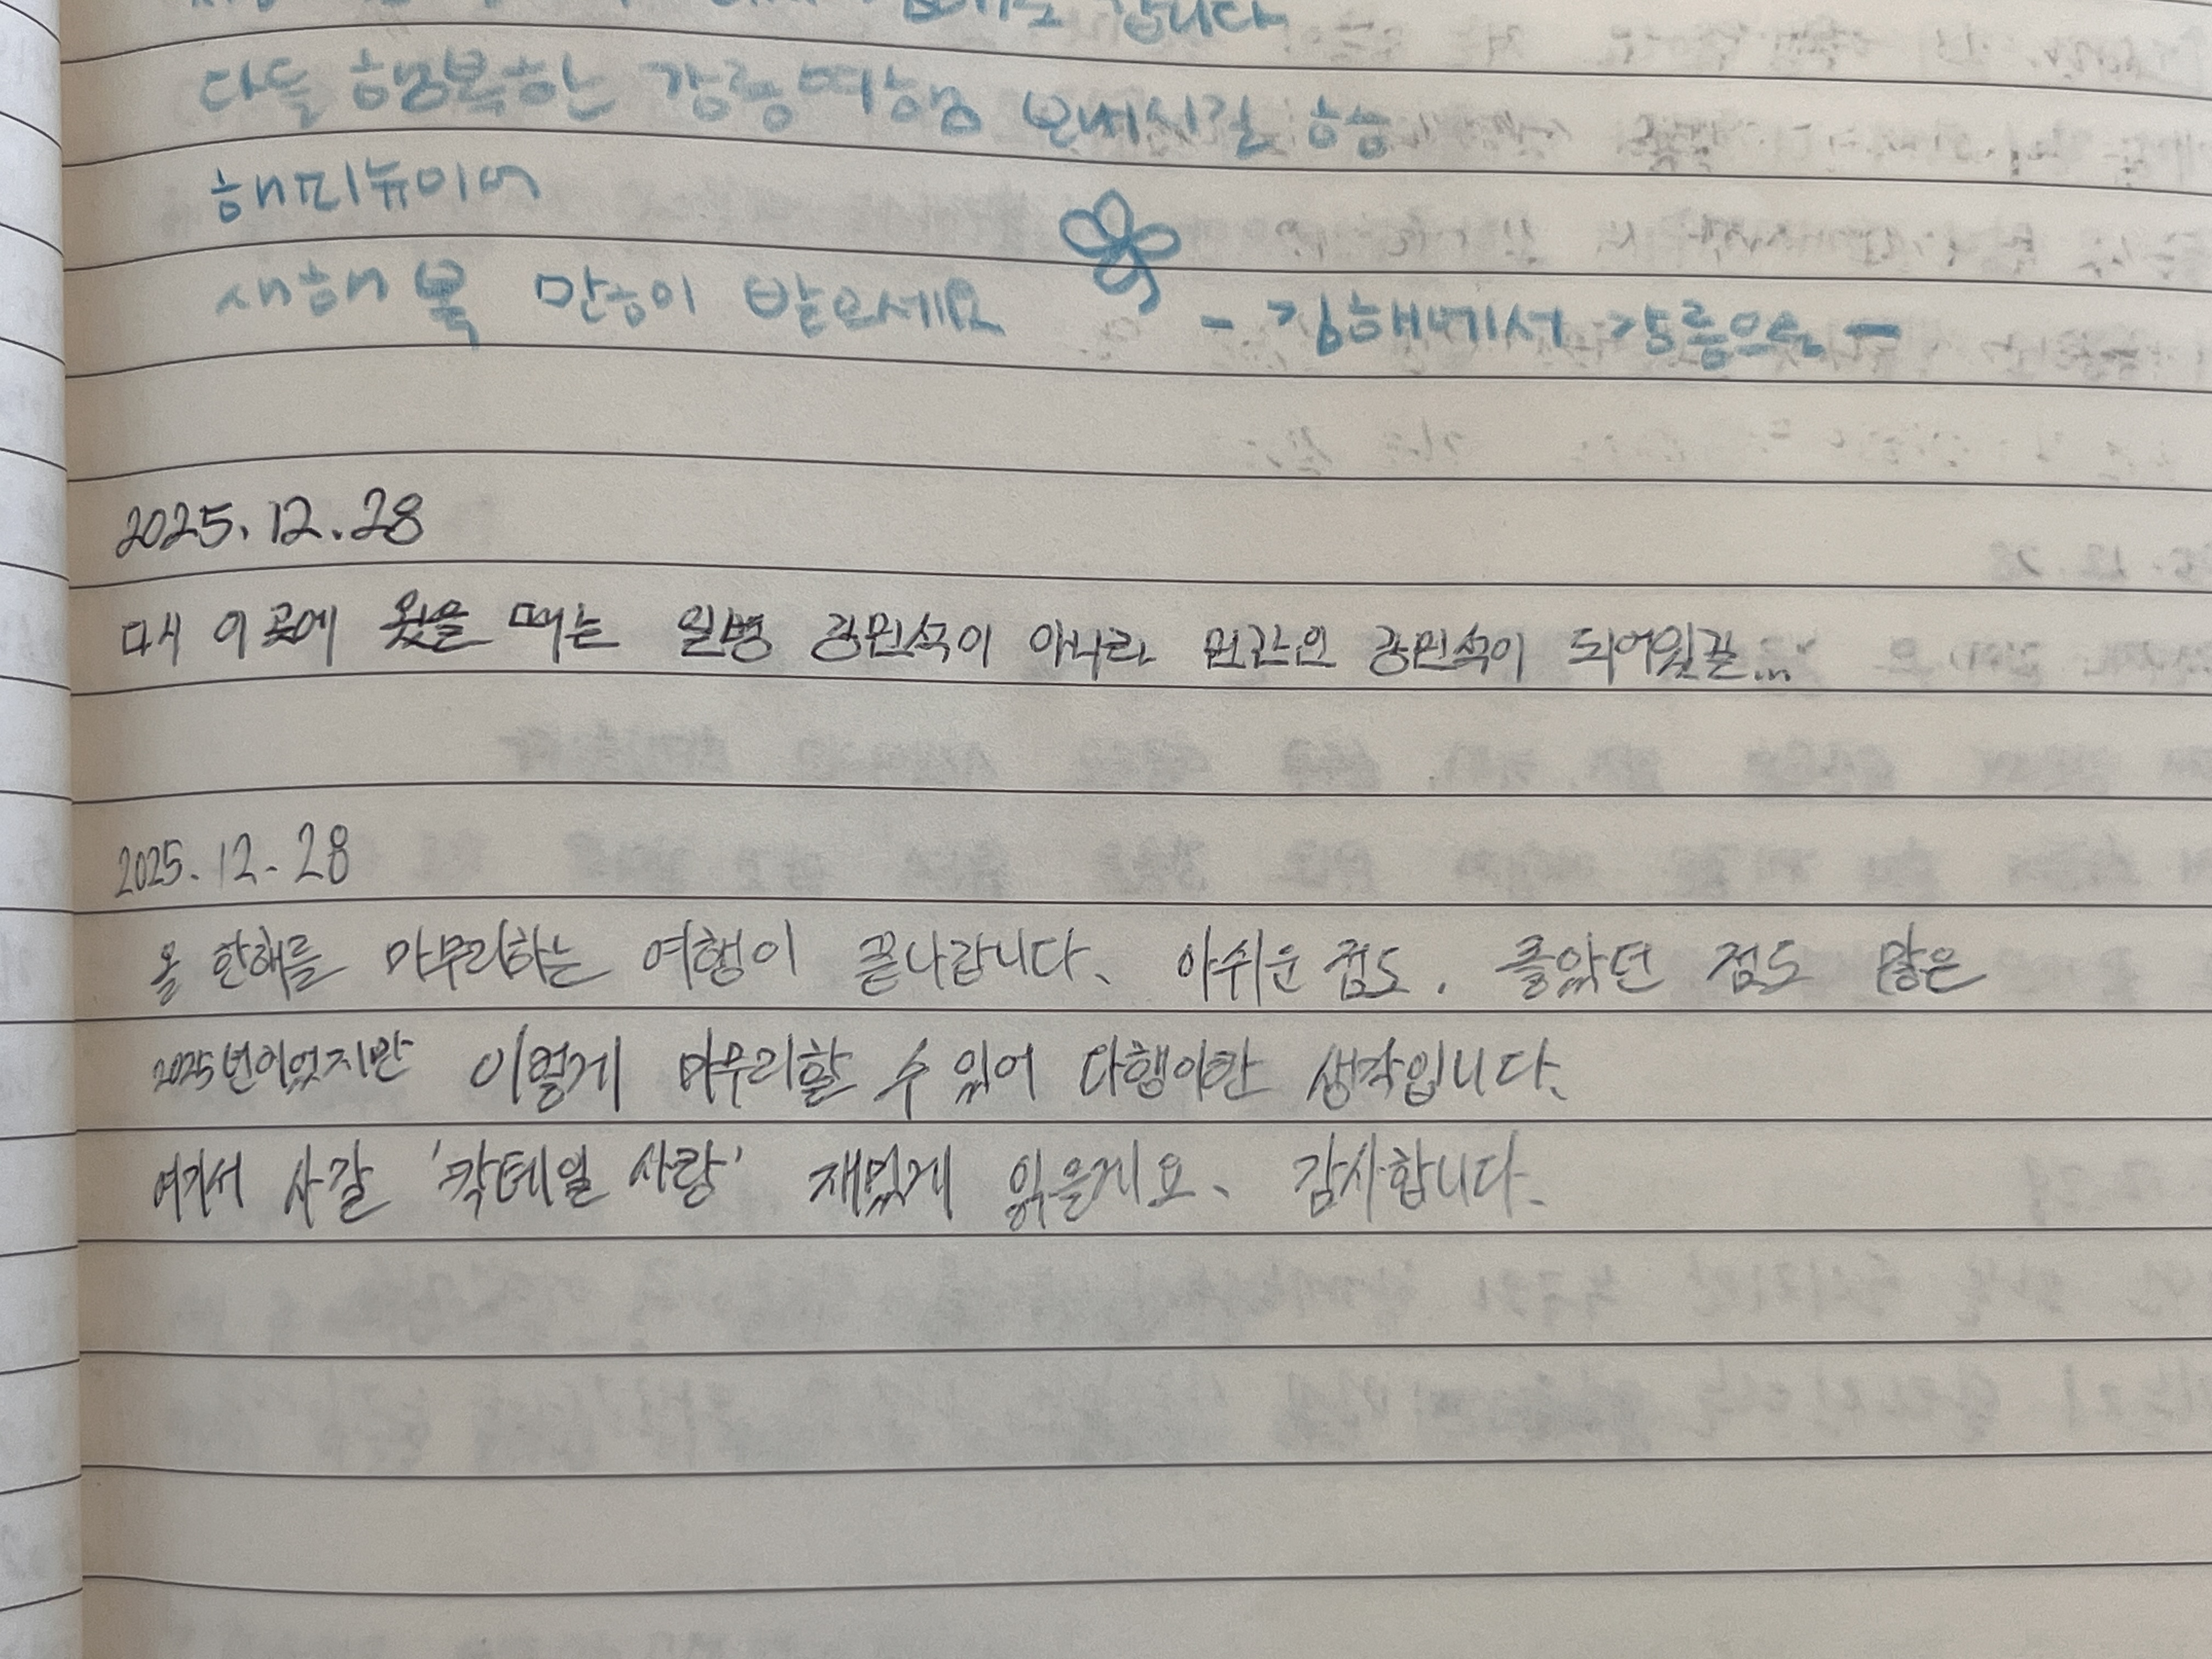 합니다
다들 행복한 강릉여행 보내시길 흐흐
해피뉴이어
새해 복 만히 받으세요
- 김해에서 강릉으로 -
2025. 12. 28
다시 이곳에 왔을 때는 일병 강민석이 아니라 민간인 강민석이 되어있길...
2025. 12. 28
올 한해를 마무리하는 여행이 끝나갑니다. 아쉬운 점도, 좋았던 점도 많은
2025년이었지만 이렇게 마무리할 수 있어 다행이란 생각입니다.
여기서 사갈 '칵테일 사랑' 재밌게 읽을게요. 감사합니다.